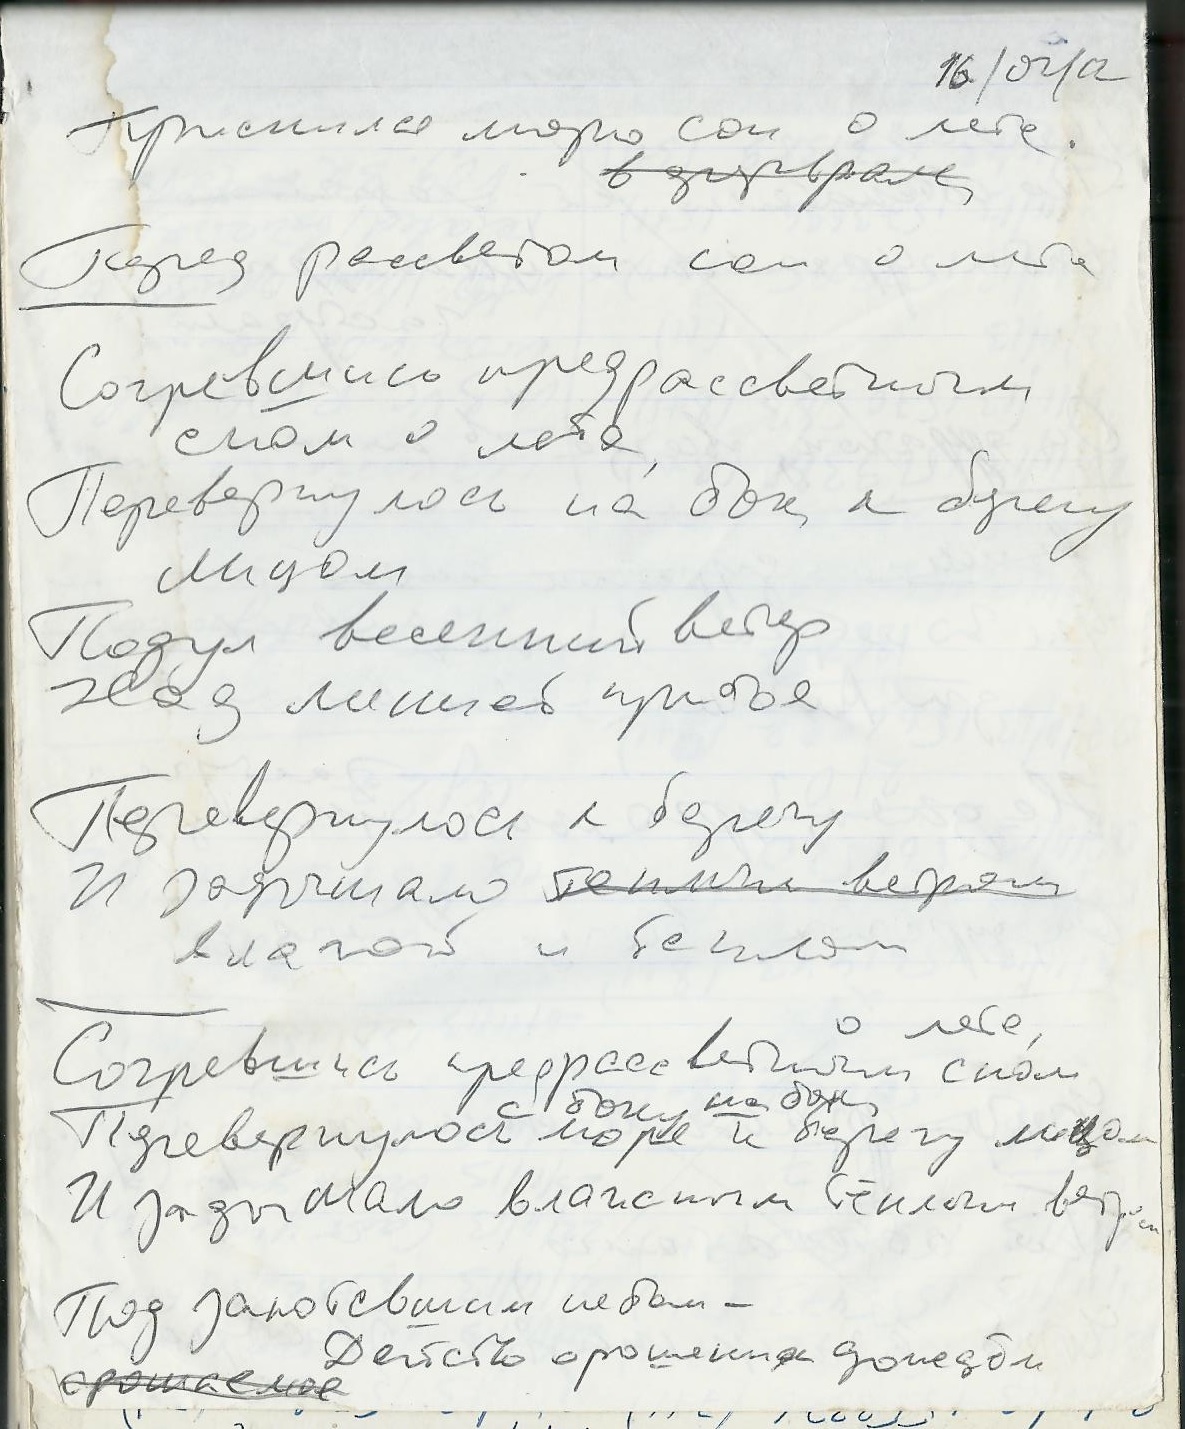 16/02/12
Приснился морю сон о лете.
в феврале,
Перед рассветом сон о лете
Согревшись предрассветным
сном о лете,
Перевернулось на бок к берегу
лицом
Подул весенний ветер
Над линией прибоя
Перевернулось к берегу
И задышало теплым ветром
влагой и теплом
о лете,
Согревшись предрассветным сном
с боку на бок,
Перевернулось море к берегу лицом
И задышало влажным тёплым ветром
Под запотевшим небом –
Детство орошении дождём
орошаемое